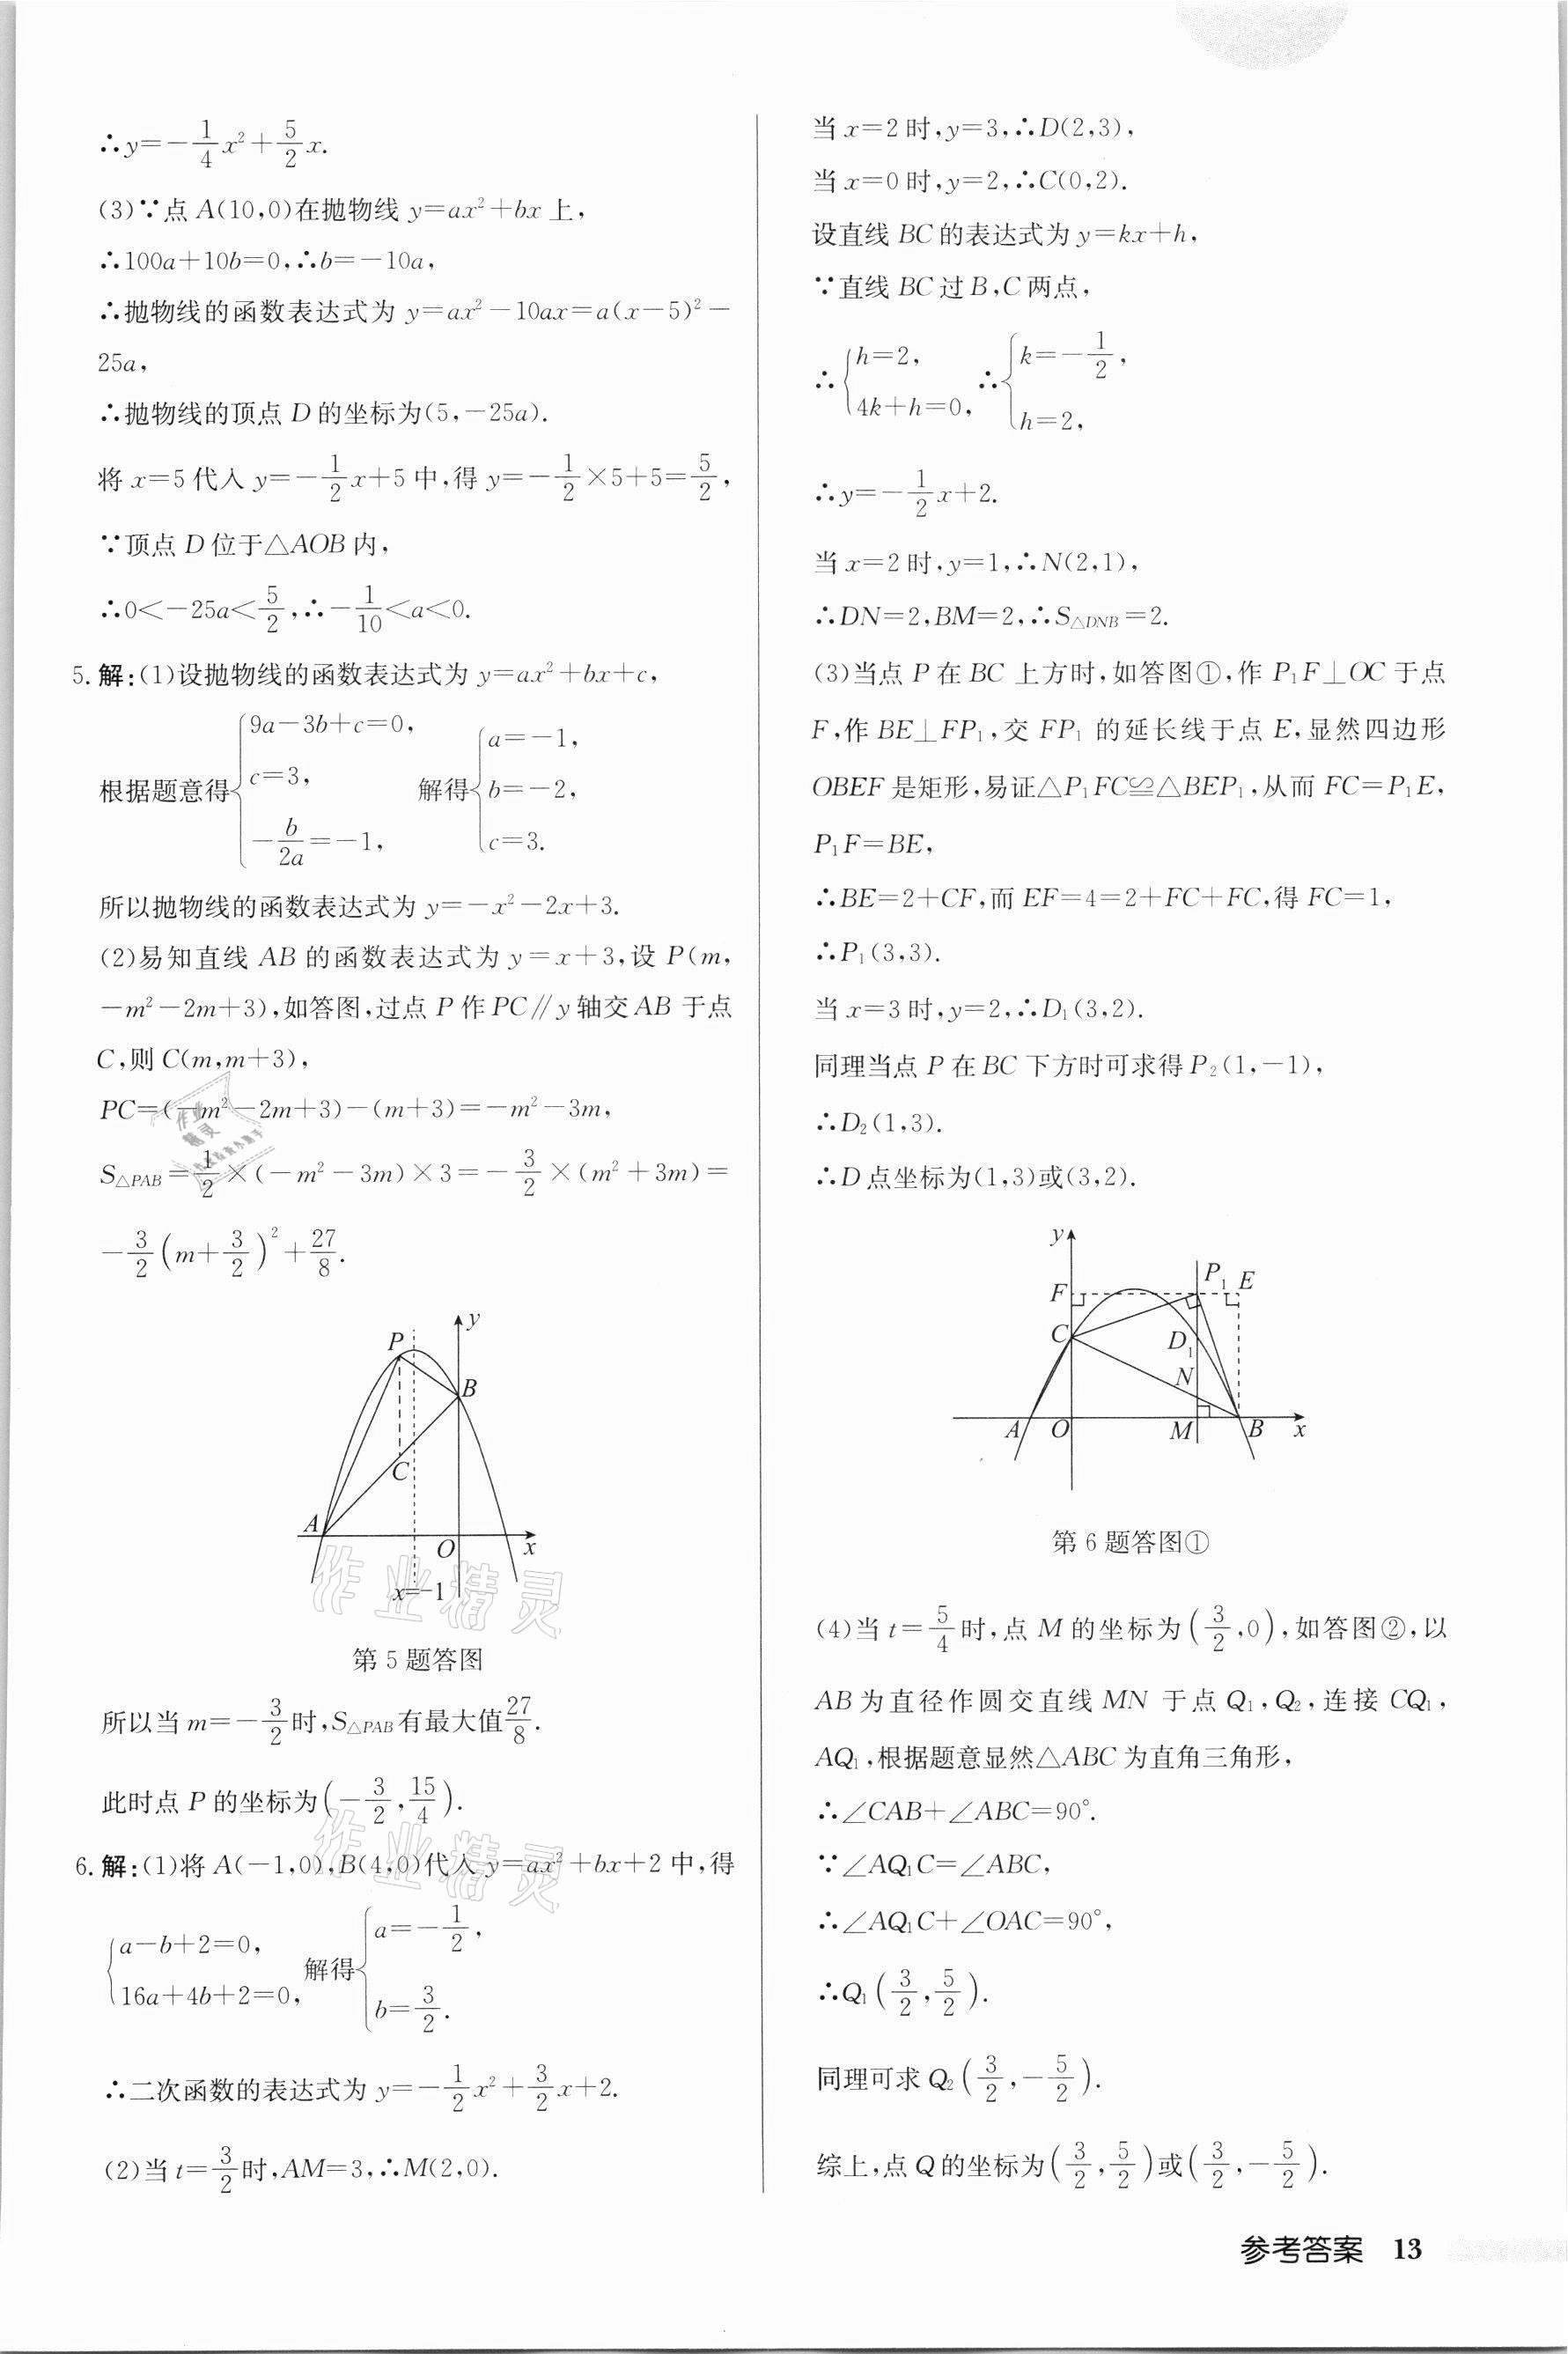 ∴y=-1/4x²+5/2x.
(3)∵点 A(10,0)在抛物线 y=ax²+bx 上,
∴100a+10b=0,∴b=-10a,
∴抛物线的函数表达式为 y=ax²-10ax=a(x-5)²-
25a,
∴抛物线的顶点 D 的坐标为(5,-25a).
将 x=5 代入 y=-1/2x+5 中,得 y=-1/2×5+5=5/2,
∵顶点 D 位于△AOB 内,
∴0<-25a<5/2,∴-1/10<a<0.
5. 解:(1)设抛物线的函数表达式为 y=ax²+bx+c,
根据题意得{9a-3b+c=0, c=3, -b/2a=-1, 解得{a=-1, b=-2, c=3.
所以抛物线的函数表达式为 y=-x²-2x+3.
(2)易知直线 AB 的函数表达式为 y=x+3,设 P(m,
-m²-2m+3),如答图,过点 P 作 PC∥y 轴交 AB 于点
C,则 C(m,m+3),
PC=(-m²-2m+3)-(m+3)=-m²-3m,
S△PAB=1/2×(-m²-3m)×3=-3/2×(m²+3m)=
-3/2(m+3/2)²+27/8.
y
P
B
C
A
O
x
x=-1
第 5 题答图
所以当 m=-3/2时,S△PAB有最大值27/8.
此时点 P 的坐标为(-3/2,15/4).
6. 解:(1)将 A(-1,0),B(4,0)代入 y=ax²+bx+2 中,得
{a-b+2=0, 16a+4b+2=0, 解得{a=-1/2, b=3/2.
∴二次函数的表达式为 y=-1/2x²+3/2x+2.
(2)当 t=3/2时,AM=3,∴M(2,0).
当 x=2 时,y=3,∴D(2,3),
当 x=0 时,y=2,∴C(0,2).
设直线 BC 的表达式为 y=kx+h,
∵直线 BC 过 B,C 两点,
∴{h=2, 4k+h=0, ∴{k=-1/2, h=2,
∴y=-1/2x+2.
当 x=2 时,y=1,∴N(2,1),
∴DN=2,BM=2,∴S△DNB=2.
(3)当点 P 在 BC 上方时,如答图①,作 P₁F⊥OC 于点
F,作 BE⊥FP₁,交 FP₁ 的延长线于点 E,显然四边形
OBEF 是矩形,易证△P₁FC≌△BEP₁,从而 FC=P₁E,
P₁F=BE,
∴BE=2+CF,而 EF=4=2+FC+FC,得 FC=1,
∴P₁(3,3).
当 x=3 时,y=2,∴D₁(3,2).
同理当点 P 在 BC 下方时可求得 P₂(1,-1),
∴D₂(1,3).
∴D 点坐标为(1,3)或(3,2).
y
F
P₁
E
C
D₁
N
A
O
M
B
x
第 6 题答图①
(4)当 t=5/4时,点 M 的坐标为(3/2,0),如答图②,以
AB 为直径作圆交直线 MN 于点 Q₁,Q₂,连接 CQ₁,
AQ₁,根据题意显然△ABC 为直角三角形,
∴∠CAB+∠ABC=90°.
∵∠AQ₁C=∠ABC,
∴∠AQ₁C+∠OAC=90°,
∴Q₁(3/2,5/2).
同理可求 Q₂(3/2,-5/2).
综上,点 Q 的坐标为(3/2,5/2)或(3/2,-5/2).
参考答案 13
作业精灵
作业精灵
作业精灵